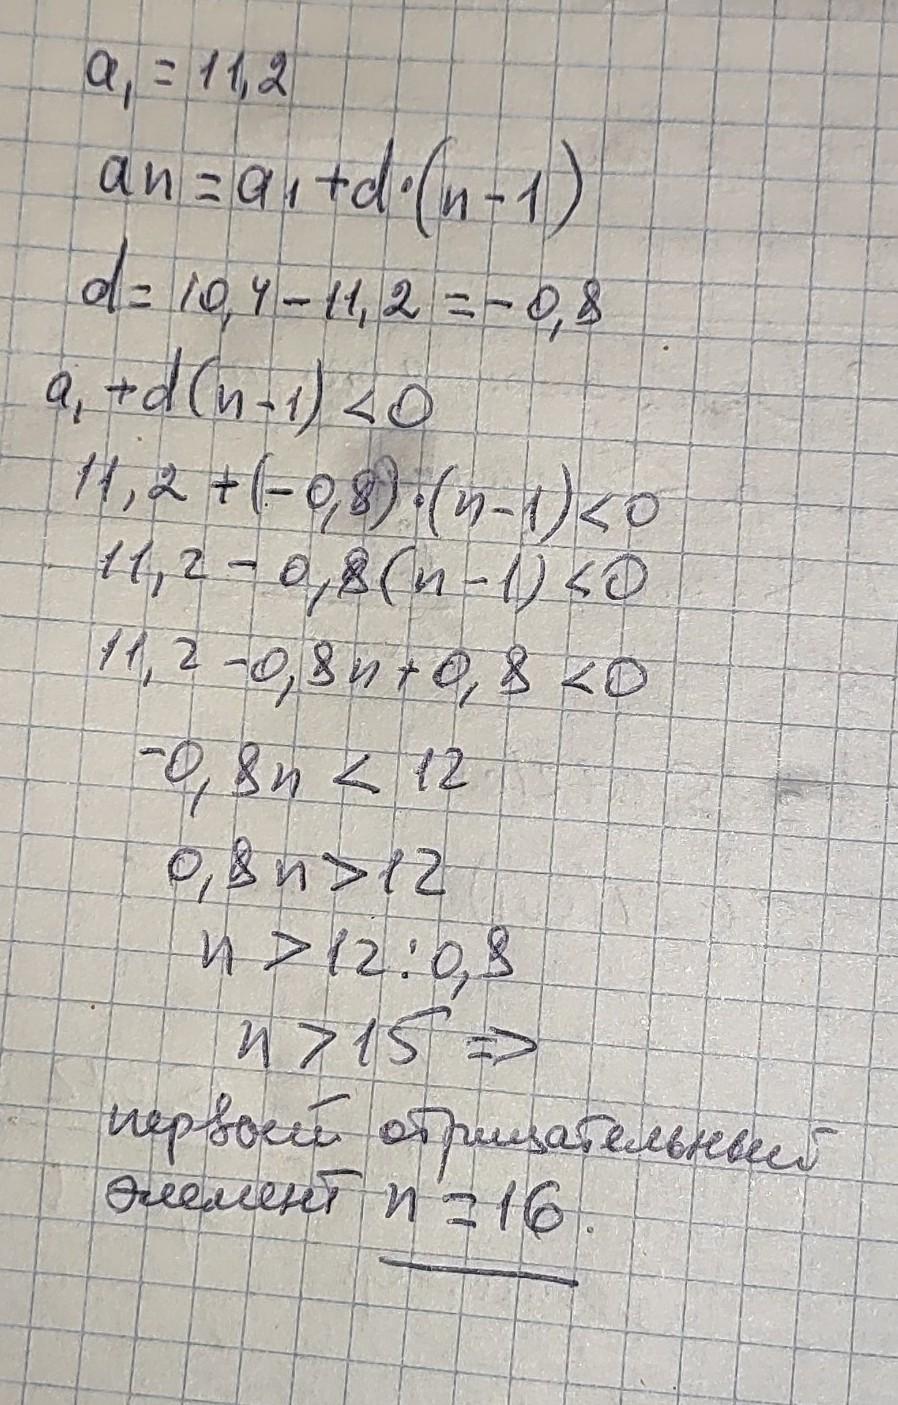 a₁ = 11,2
an = a₁ + d·(n-1)
d = 10,4 - 11,2 = -0,8
a₁ + d(n-1) < 0
11,2 + (-0,8)·(n-1) < 0
11,2 - 0,8(n-1) < 0
11,2 - 0,8n + 0,8 < 0
-0,8n < 12
0,8n > 12
n > 12:0,8
n > 15 =>
первый отрицательный
элемент n = 16.